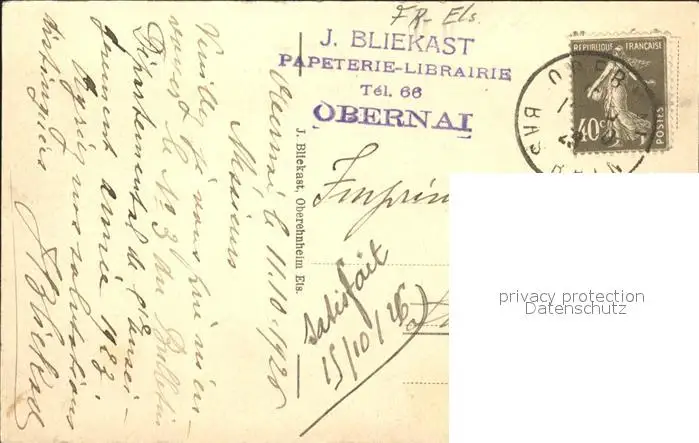 FR- Els.
J. BLIEKAST
PAPETERIE-LIBRAIRIE
Tél. 66
OBERNAI
RÉPUBLIQUE FRANÇAISE
40c
POSTES
BAS RHIN
J. Bliekast, Oberehnheim Els.
Imprim
satisfait
15/10/26
Obernai le 11.10.1926
Messieurs
Veuillez je vous prie m'en-
voyer le No 3 du Bulletin
Départemental de l'Ensei-
gnement année 1923
Agréez mes salutations
distinguées
J Bliekast
privacy protection
Datenschutz